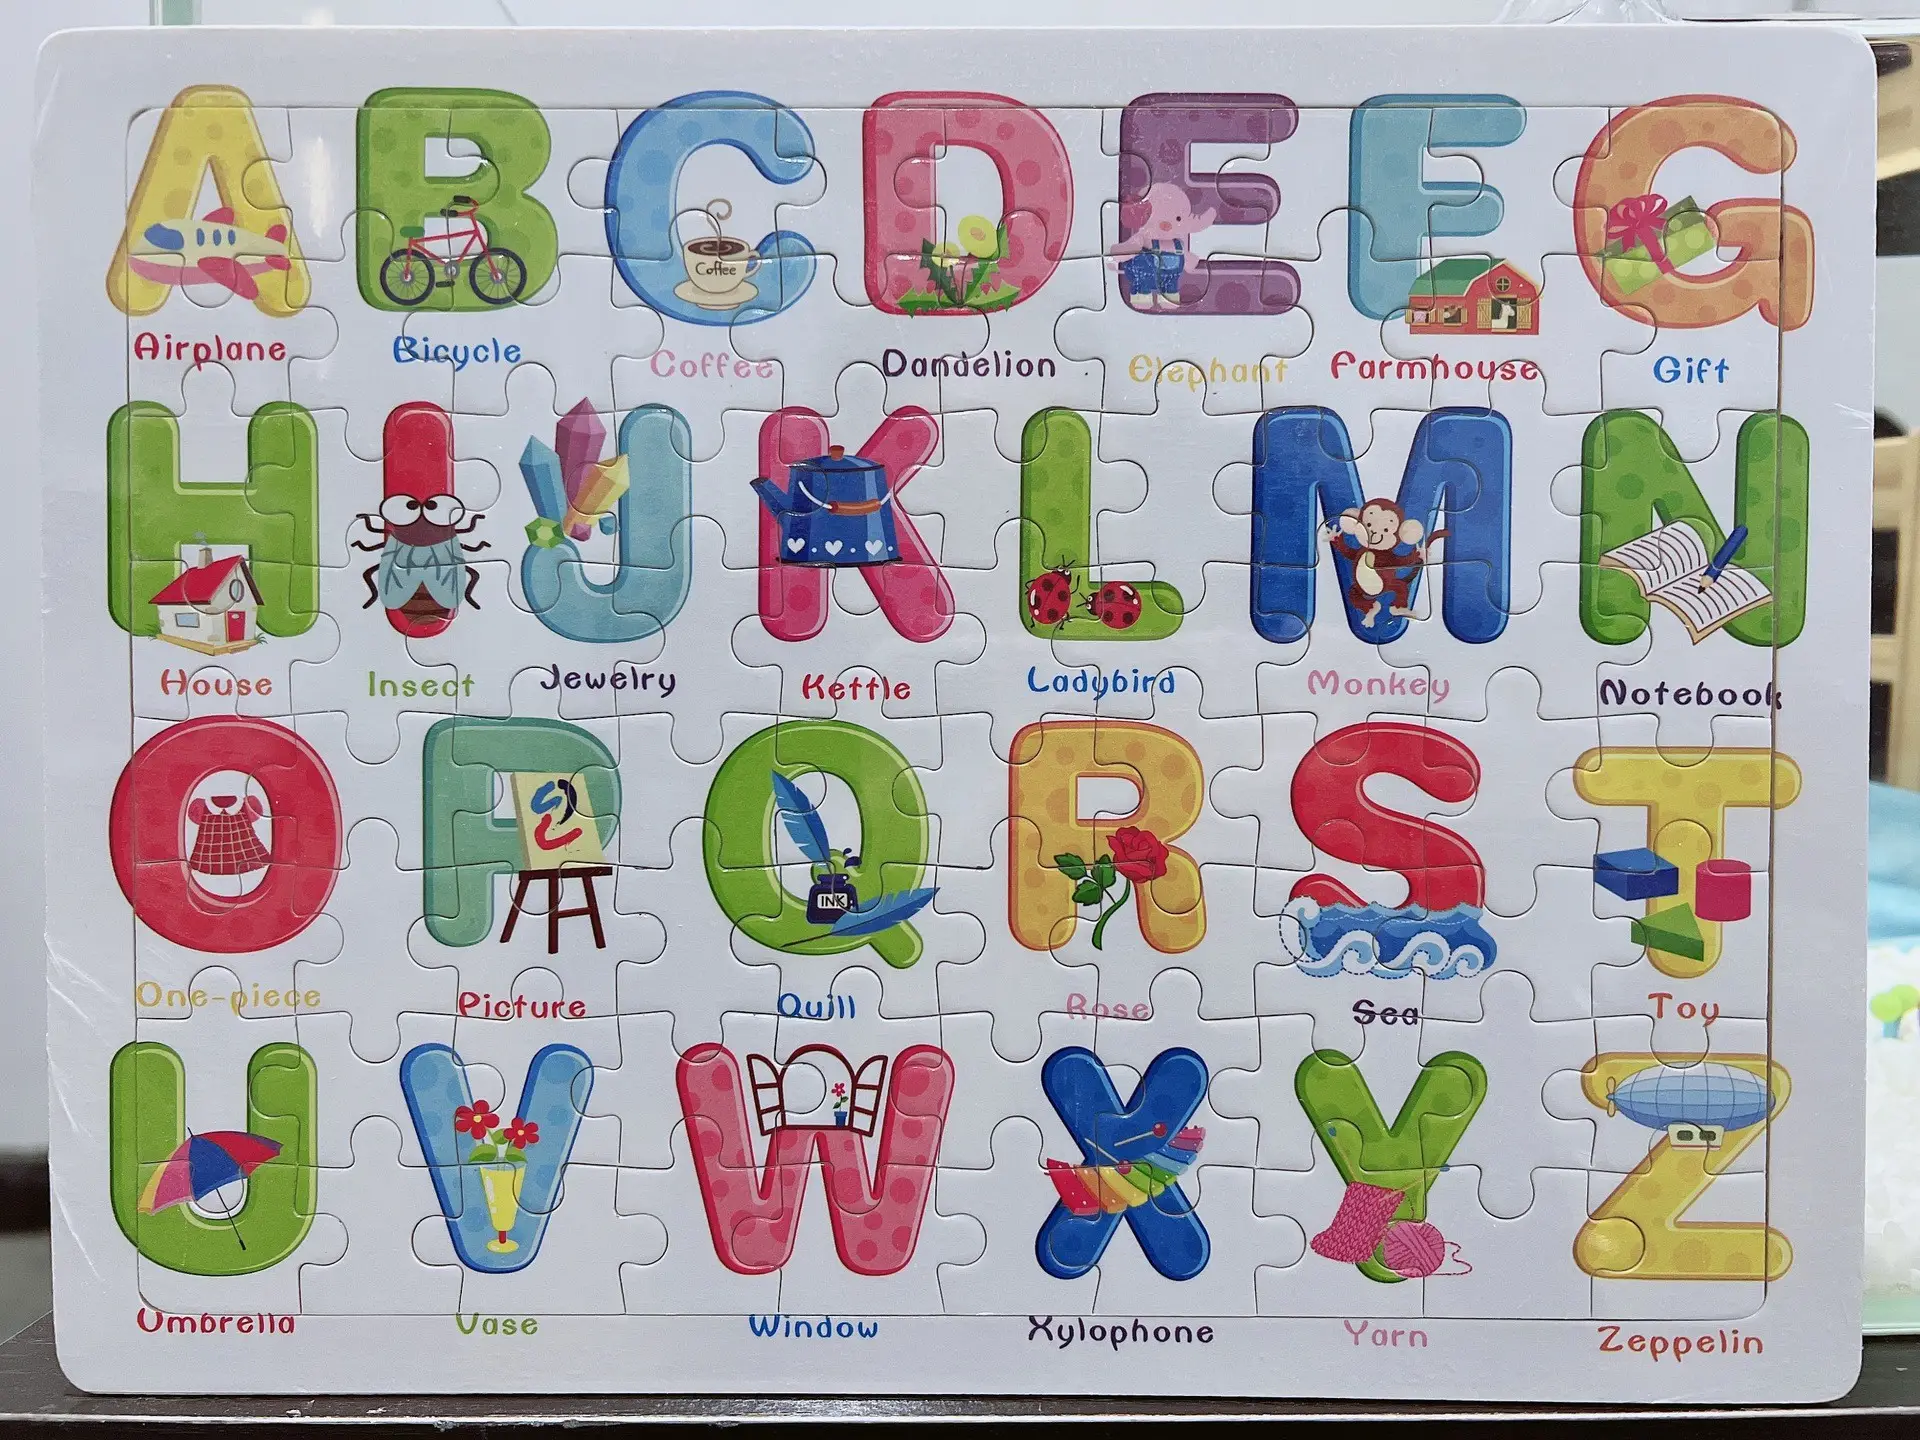 A B C D E F G
Coffee
Airplane Bicycle Coffee Dandelion Elephant Farmhouse Gift
H I J K L M N
House Insect Jewelry Kettle Ladybird Monkey Notebook
O P Q R S T
INK
One-piece Picture Quill Rose Sea Toy
U V W X Y Z
Umbrella Vase Window Xylophone Yarn Zeppelin